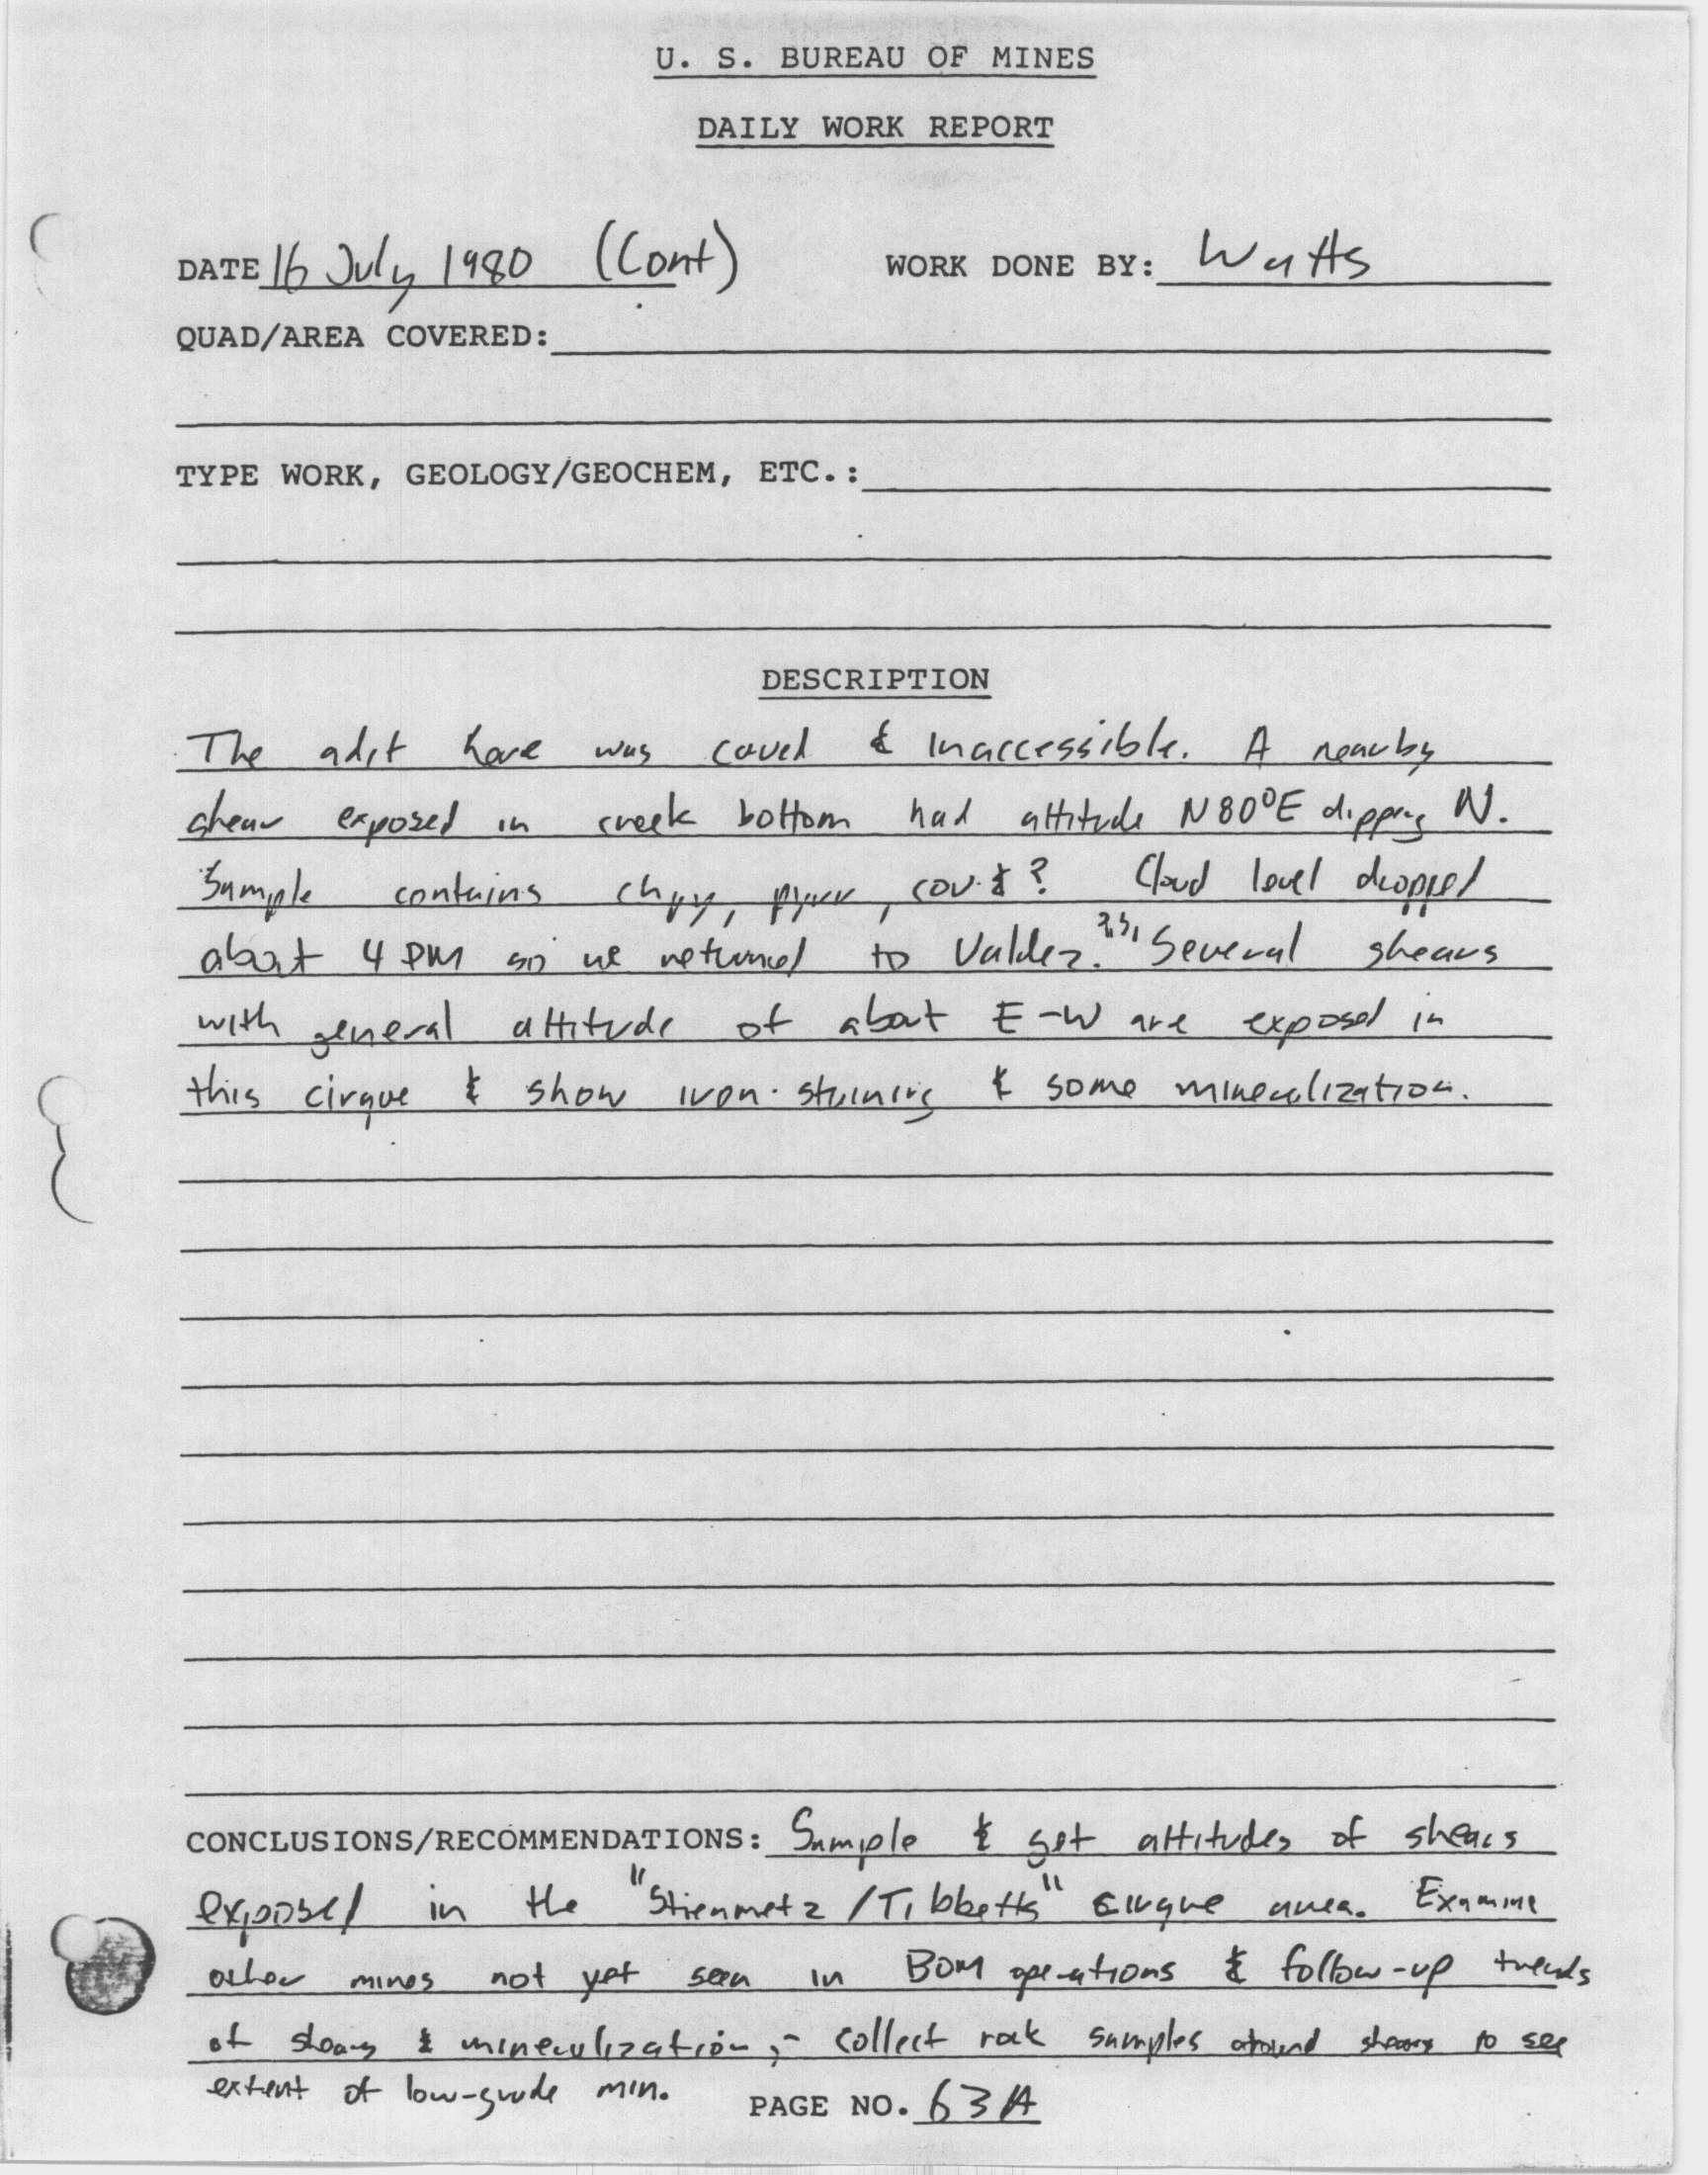 U. S. BUREAU OF MINES
DAILY WORK REPORT
DATE 16 July 1980 (Cont) WORK DONE BY: Watts
QUAD/AREA COVERED:
TYPE WORK, GEOLOGY/GEOCHEM, ETC.:
DESCRIPTION
The adit here was caved & inaccessible. A nearby
shear exposed in creek bottom had attitude N80°E dipping N.
Sample contains chpy, pyrr, cov.&? Cloud level dropped
about 4 PM so we returned to Valdez. Several shears
with general attitude of about E-W are exposed in
this cirque & show iron-staining & some mineralization.
CONCLUSIONS/RECOMMENDATIONS: Sample & get attitudes of shears
exposed in the "Stienmetz/Tibbetts" cirque area. Examine
other mines not yet seen in BOM operations & follow-up trends
of shears & mineralization; - collect rock samples around shears to see
extent of low-grade min.
PAGE NO. 63A